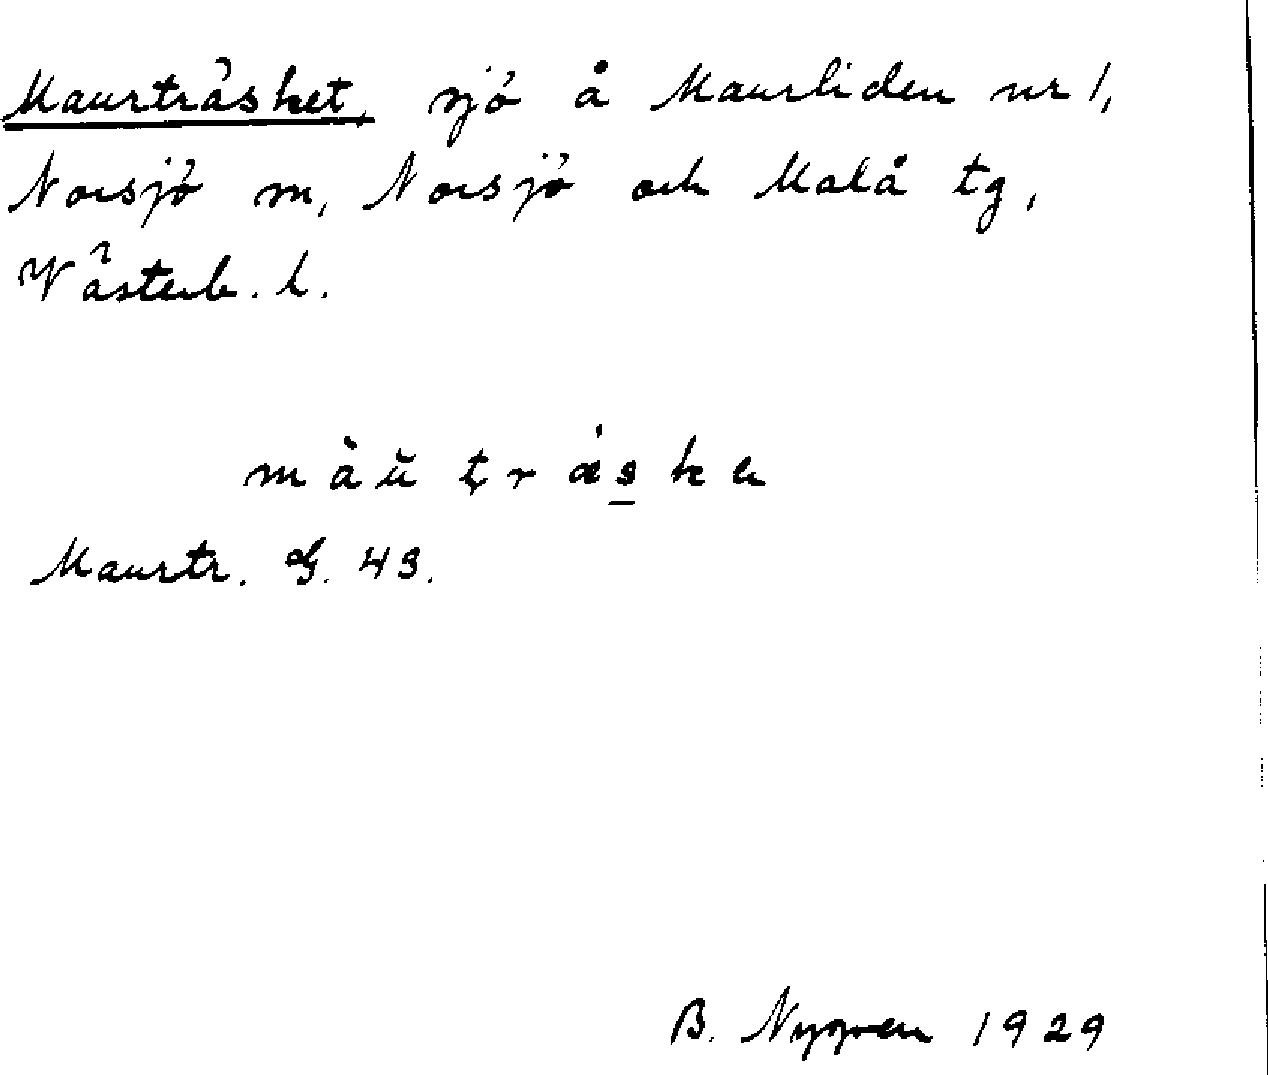 Maurträsket, sjö å Maurliden nr 1,
Norsjö m, Norsjö och Malå tg,
Västerb. l.
Maurtr. G. 43.
B. Nygren 1929